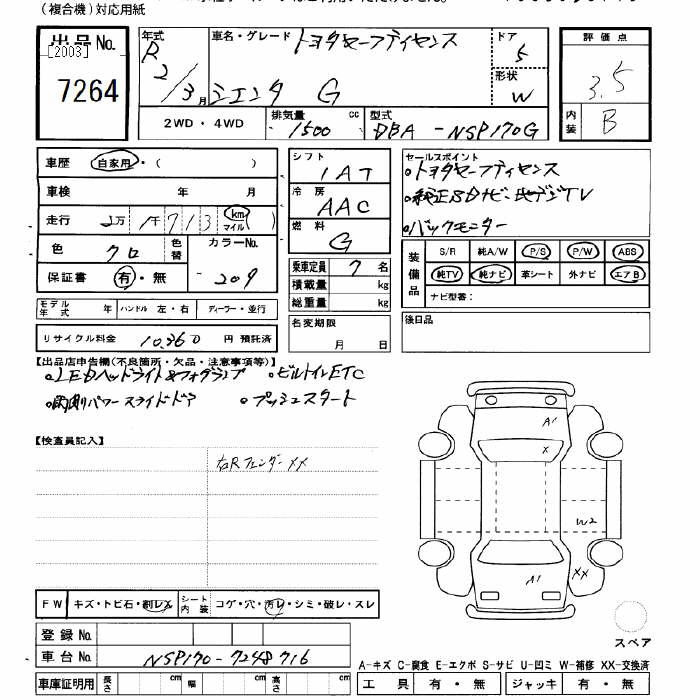 (複合機)対応用紙
出品No.
[2003]
7264
年式
R
2/3月
車名・グレード
トヨタセーフティセンス
シエンタ G
ドア
5
形状
W
評価点
3.5
内装
B
2WD・4WD
排気量
1500
cc
型式
DBA-NSP170G
車歴
自家用・( )
車検 年 月
走行 2万1千713km
マイル( )
色 クロ
色替
カラーNo.
209
保証書 有・無
シフト
IAT
冷房
AAC
燃料
G
セールスポイント
・トヨタセーフティセンス
・純正SDナビ地デジTV
・バックモニター
装備品
S/R 純A/W P/S P/W ABS
純TV 純ナビ 革シート 外ナビ エアB
ナビ型番:
乗車定員 7 名
積載量 kg
総重量 kg
モデル年式 年 ハンドル 左・右 ディーラー・並行
名変期限
月 日
後日品
リサイクル料金 10,360 円 預託済
【出品店申告欄(不良箇所・欠品・注意事項等)】
・LEDヘッドライト&フォグランプ ・ビルトインETC
・両側パワースライドドア ・プッシュスタート
【検査員記入】
右Rフェンダー XX
A1
X
W2
A1
XX
スペア
FW キズ・トビ石・割レX
シート内装 コゲ・穴・汚レ・シミ・破レ・スレ
登録No.
車台No. NSP170-7248716
車庫証明用 長さ cm 幅 cm 高さ cm
A-キズ C-腐食 E-エクボ S-サビ U-凹ミ W-補修 XX-交換済
工具 有・無 ジャッキ 有・無